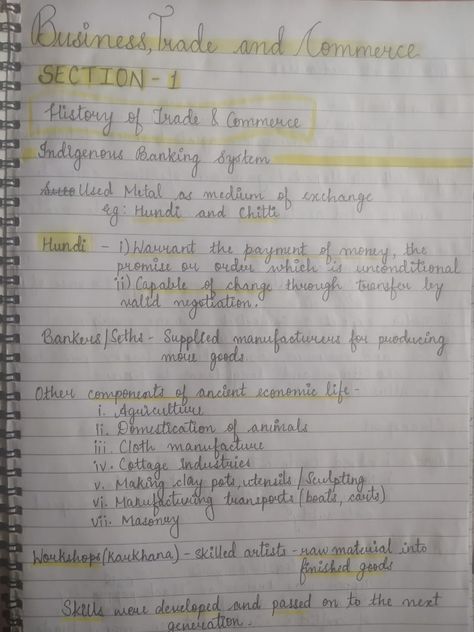 Business, Trade and Commerce
SECTION - 1
History of Trade & Commerce
Indigenous Banking System
Used Metal as medium of exchange
eg: Hundi and Chitti
Hundi - i) Warrant the payment of money, the
promise or order which is unconditional
ii) Capable of change through transfer by
valid negotiation.
Bankers/Seths - Supplied manufacturers for producing
more goods.
Other components of ancient economic life -
i. Agriculture
ii. Domestication of animals
iii. Cloth manufacture
iv. Cottage industries
v. Making clay pots, utensils/Sculpting
vi. Manufacturing transports (boats, carts)
vii. Masonry
Workshops (Karkhana) - skilled artists - raw material into
finished goods
Skills were developed and passed on to the next
generation.